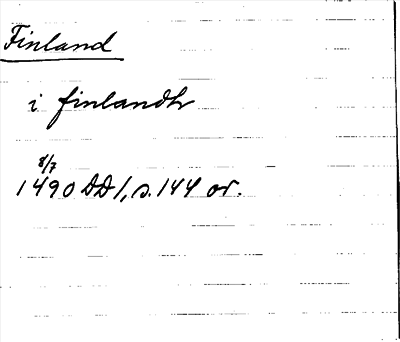 Finland
i finlandh
8/7
1490 DD 1, s. 144 or.